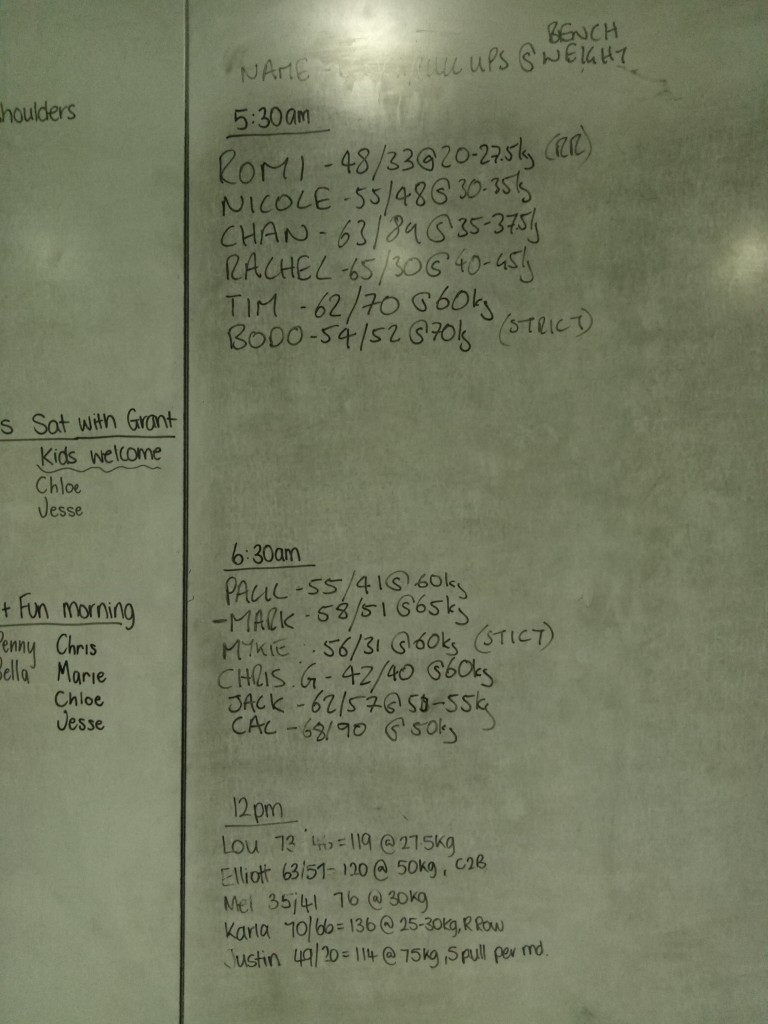 houlders
s Sat with Grant
Kids welcome
Chloe
Jesse
+ Fun morning
enny Chris
ella Marie
Chloe
Jesse
BENCH
NAME - UPS @ WEIGHT
5:30am
ROMI - 48/33@20-27.5kg (RR)
NICOLE - 55/48@30-35kg
CHAN - 63/89@35-37.5kg
RACHEL - 65/30@40-45kg
TIM - 62/70 @60kg
BODO - 54/52 @70kg (STRICT)
6:30am
PAUL - 55/41@60kg
-MARK - 58/51 @65kg
MYKIE : 56/31 @60kg (STICT)
CHRIS.G - 42/40 @60kg
JACK - 62/57@50-55kg
CAL - 68/90 @50kg
12pm
Lou 73 = 119 @ 27.5kg
Elliott 63/57- 120 @ 50kg, C2B
Mel 35/41 76 @ 30kg
Karla 70/66 = 136 @ 25-30kg, R Row
Justin 49/20 = 114 @ 75kg, 5 pull per rnd.